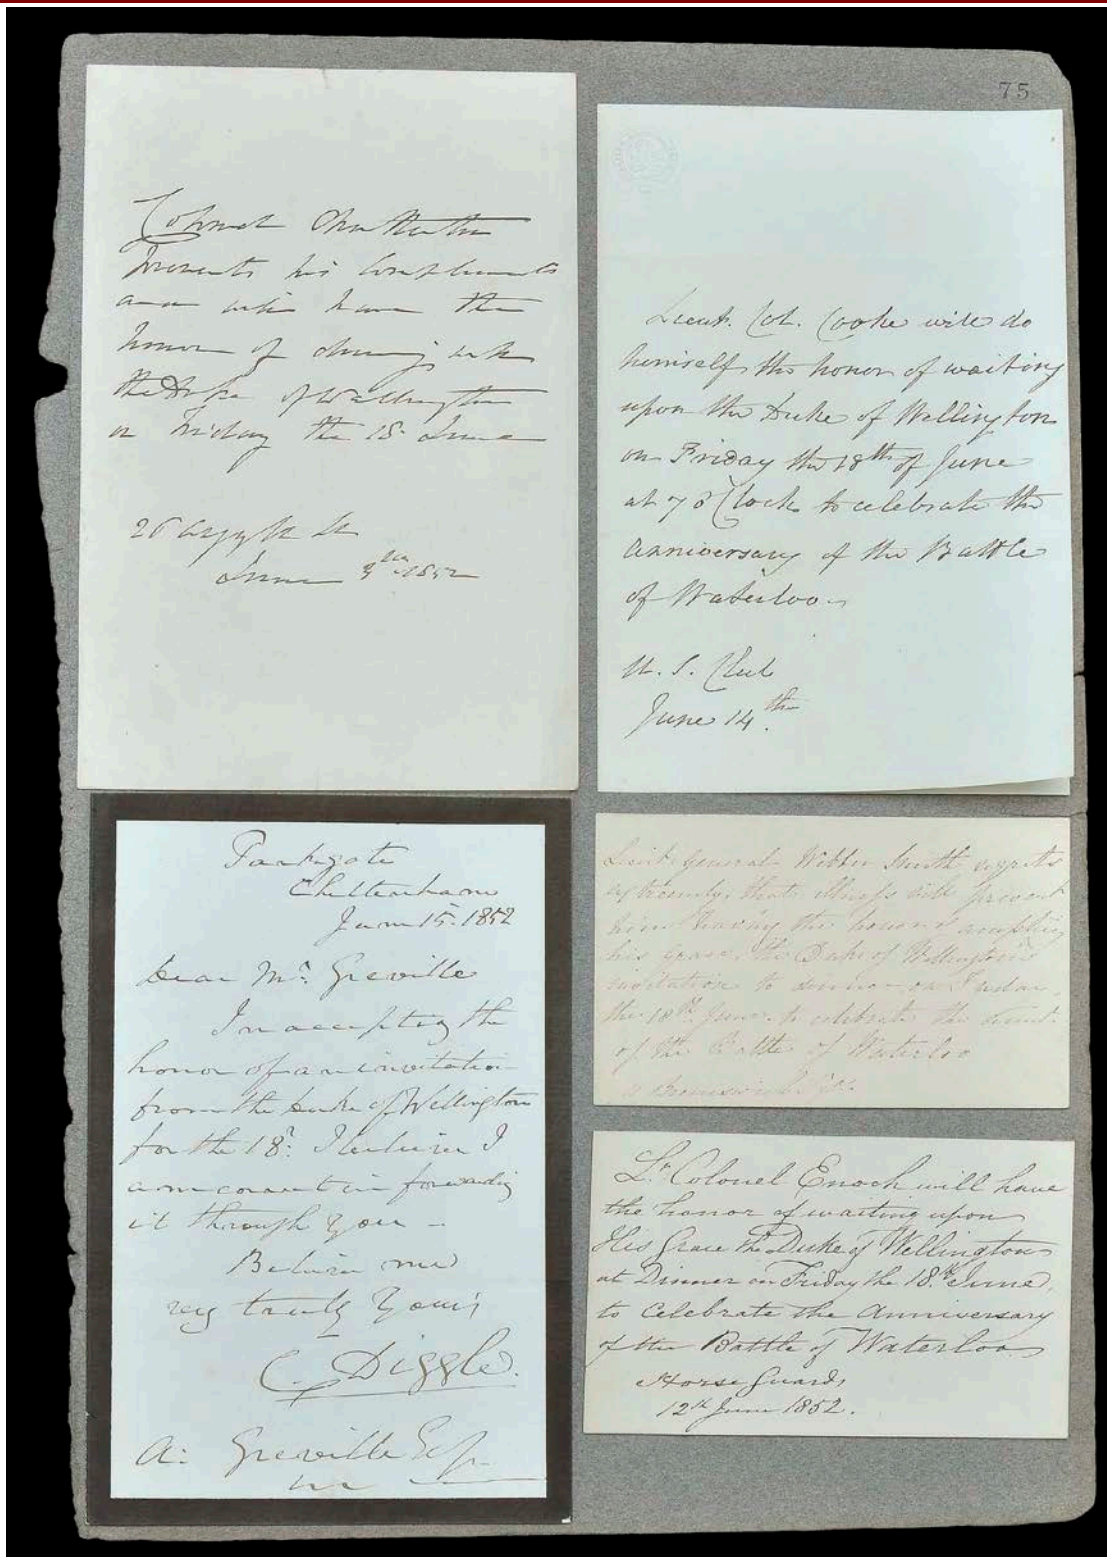 75
Colonel Chatterton
presents his Compliments
and will have the
honor of dining with
the Duke of Wellington
on Friday the 18 June
26 Argyll St
June 9th 1852
Lieut. Col. Cooke will do
himself the honor of waiting
upon the Duke of Wellington
on Friday the 18th of June
at 7 o'Clock to celebrate the
anniversary of the Battle
of Waterloo.
U. S. Club
June 14th.
Parkgate
Cheltenham
June 15. 1852
Dear Mr. Greville
In accepting the
honor of an invitation
from the Duke of Wellington
for the 18th. I believe I
am correct in forwarding
it through you -
Believe me
very truly Yours
C. Diggle.
A: Greville Esqr.
Lieut. General Webber Smith regrets
extremely, that illness will prevent
him having the honour accepting
his Grace, the Duke of Wellington's
invitation to dinner on Friday,
the 18th June. to celebrate the
of the Battle of Waterloo
Lt. Colonel Enoch will have
the honor of waiting upon
His Grace the Duke of Wellington
at Dinner on Friday the 18th. June,
to Celebrate the Anniversary
of the Battle of Waterloo
Horse Guards
12th June 1852.